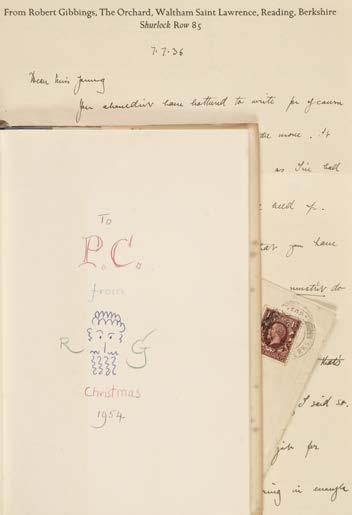 From Robert Gibbings, The Orchard, Waltham Saint Lawrence, Reading, Berkshire
Shurlock Row 85
7.7.36
Dear Miss Young
You shouldn't have bothered to write for of course
the more. It
as I've had
need
that you have
do
that's
I said so.
job for
ing in enough
To
P.C.
from
R G
Christmas
1954